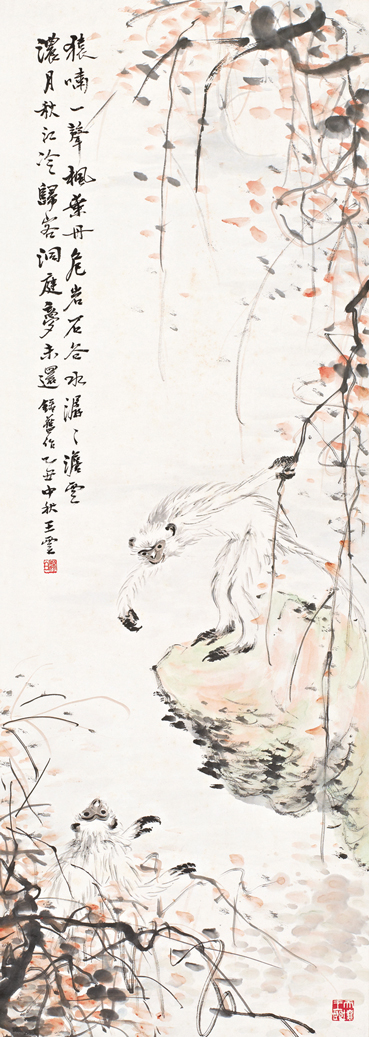 猿啼一聲楓葉丹危岩石谷水潺〻澹雲
濃月秋江冷歸客洞庭夢未還 錄舊作乙丑中秋王雲